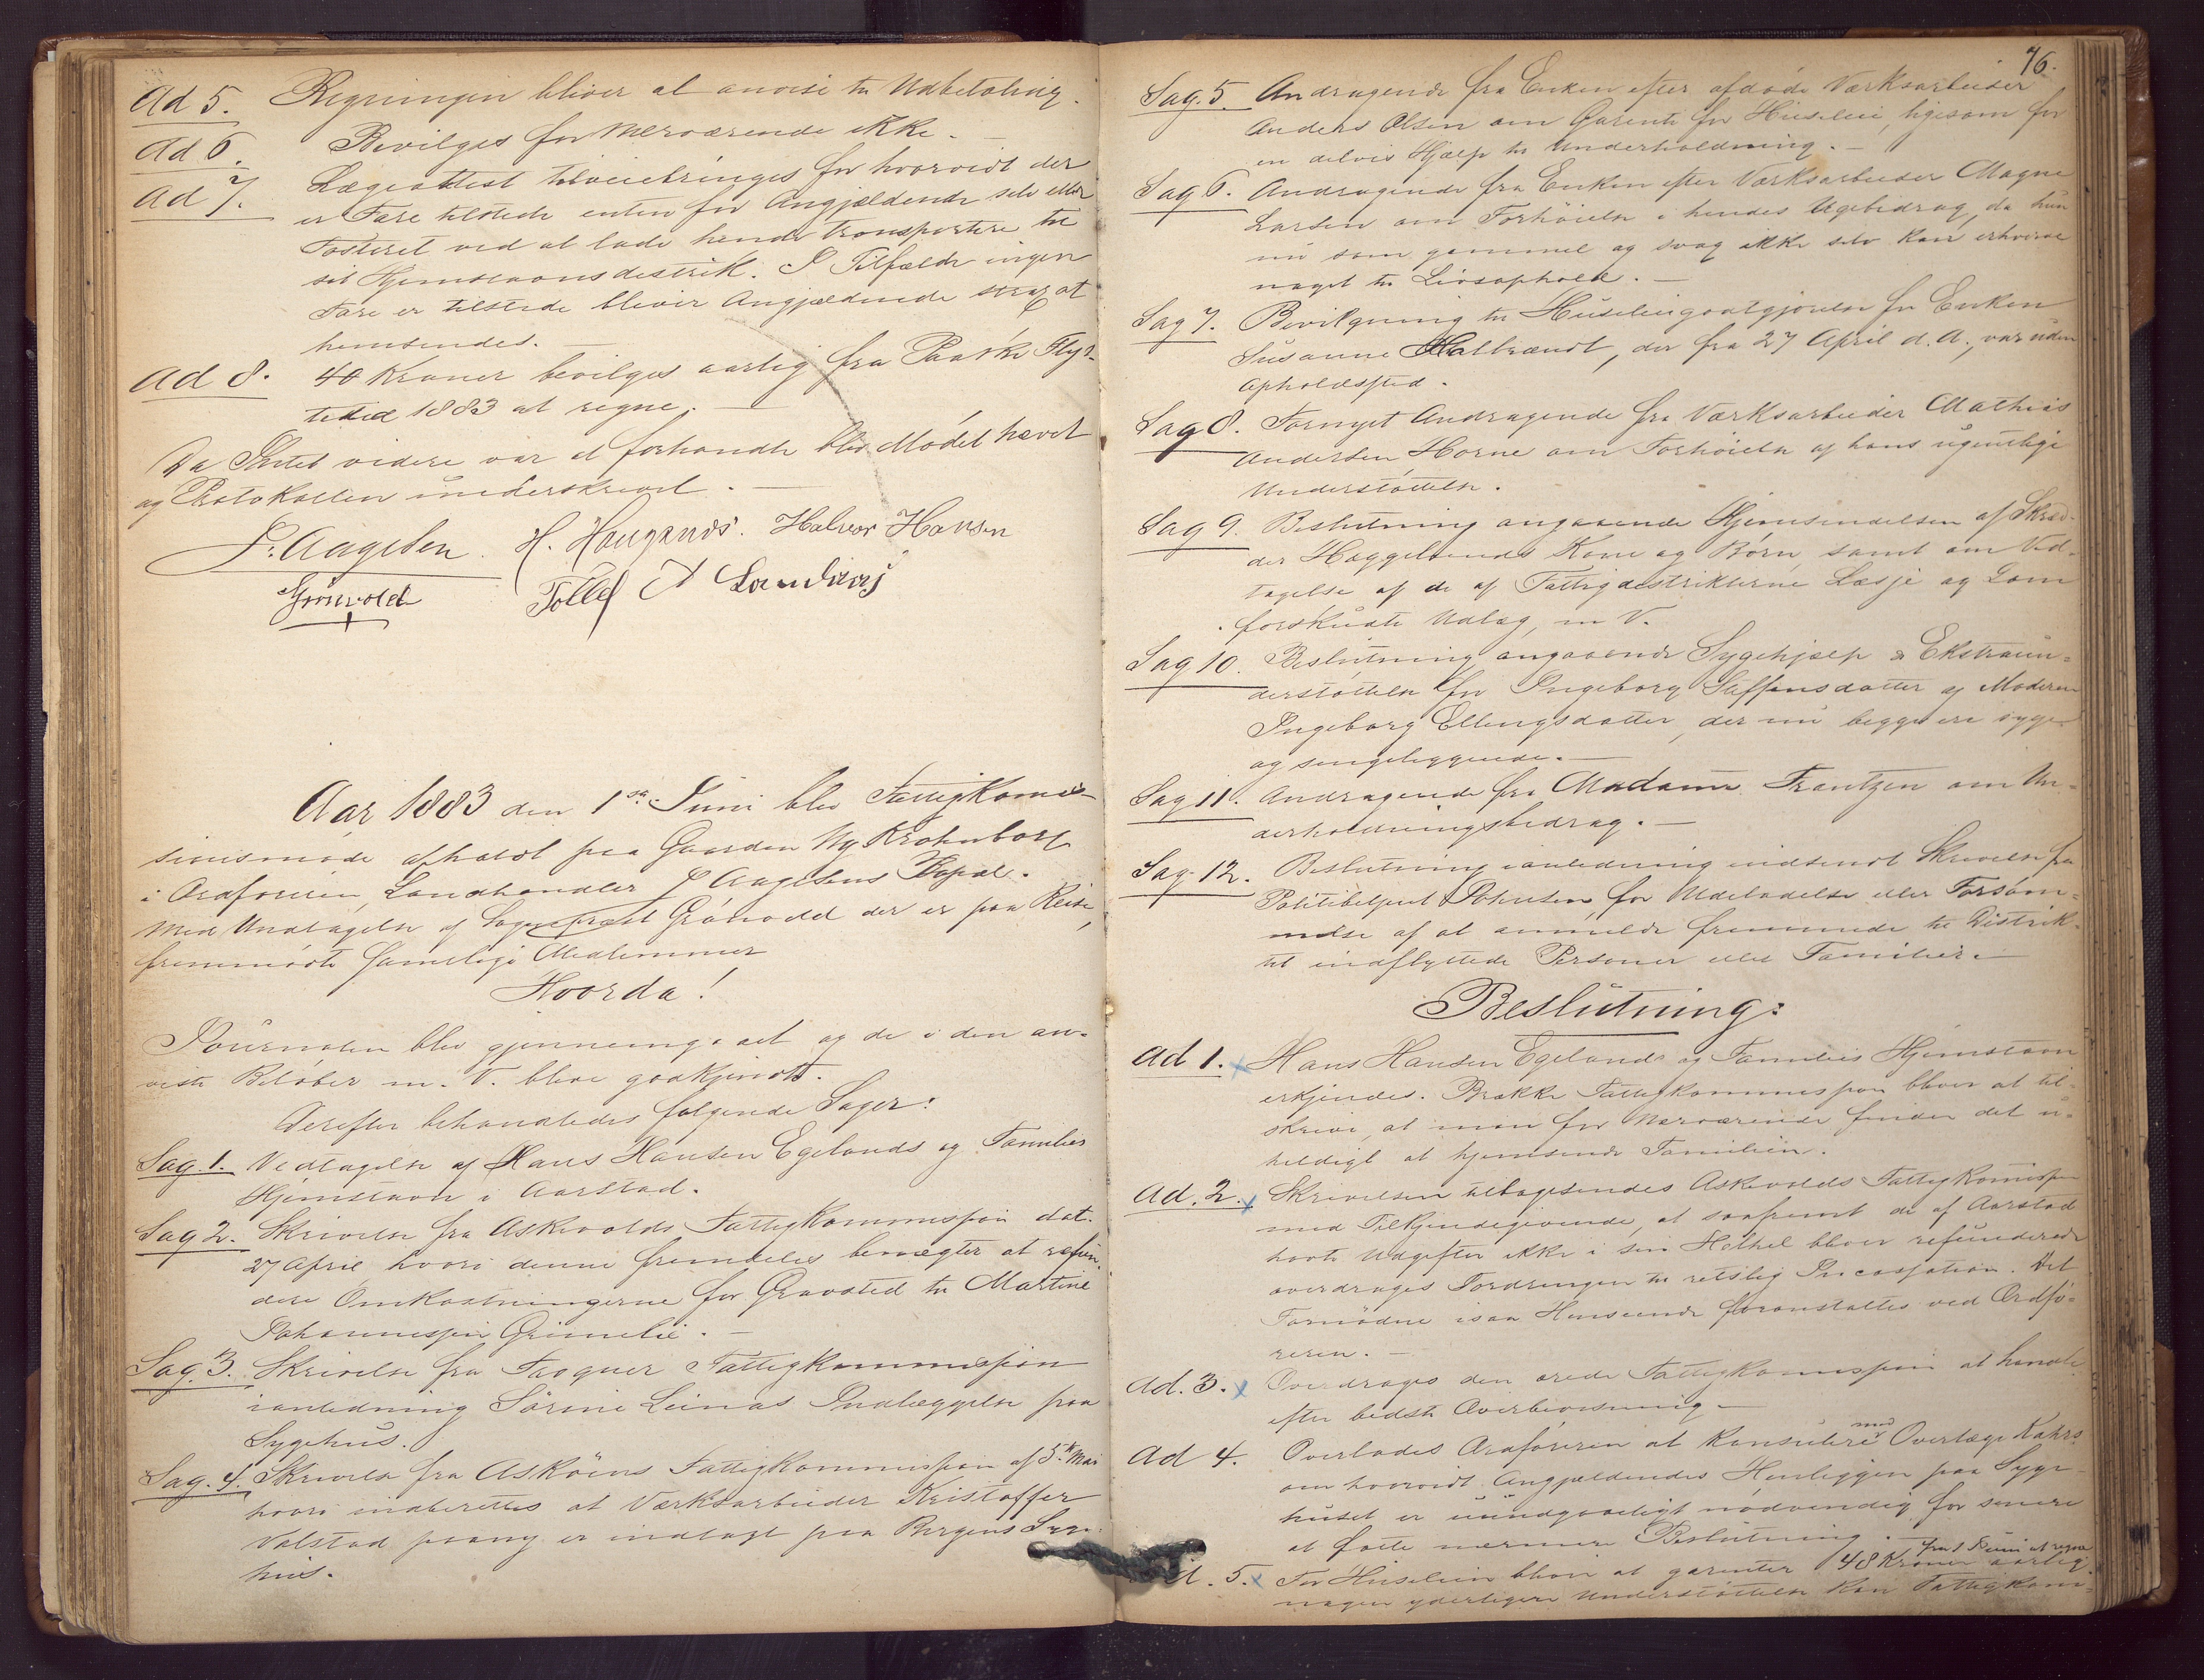 Ad 5. Regningen bliver at anvise til Udbetaling.
Ad 6. Bevilges for Nærværende ikke. —
Ad 7. Lægeattest tilveiebringes for hvorvidt der
er Fare tilstede enten for Angjældende selv eller
Fosteret ved at lade hende transportere til
sit Hjemstavnsdistrik. I Tilfælde ingen
Fare er tilstede bliver Angjældende strax at
hemsendes. —
Ad 8. 40 Kroner bevilges aarlig fra Paaske Flyt-
tetid 1883 at regne. —
Da Intet videre var at forhandle blev Mødet hævet
og Protokollen underskrevet. —
F. Aagesen. H. Haugsnds. Halvor Hansen
Grønvold Tollef Landaas
Aar 1883 den 1ste Juni blev Fattigkomis-
sionsmøde afholdt paa Gaarden Ny Krohnborg
i Ordføreren, Landhandler F Aagesens Bopæl.
Med Undtagelse af Sogneprest Grønvold der er paa Reise,
fremmødte samtlige Medlemmer
Hvorda!
Journalen blev gjennemgaaet og de i den an-
viste Beløber m. V. bleve godkjendt.
Derefter behandledes følgende Sager:
Sag. 1. Vedtagelse af Hans Hansen Egelands og Families
Hjemstavn i Aarstad.
Sag 2. Skrivelse fra Askevolds Fattigkommission dat.
27 April hvori denne fremdeles benægter at refun-
dere Omkostningerne for Gravsted til Martine
Johannesen Grimelie. —
Sag. 3. Skrivelse fra Sogner Fattigkommission
ianledning Sørine Leinas Indlæggelse paa
Sygehus.
Sag. 4. Skrivelse fra Askøens Fattigkommission af 5te Mai
hvori indberettes at Værksarbeider Kristoffer
Valstad paany er indlagt paa Bergens Syge-
hus.
76.
Sag. 5. Andragende fra Enken efter afdøde Værksarbeider
Anders Olsen om Garenti for Husleie, ligesom for
en delvis Hjælp til Underholdning. —
Sag 6. Andragende fra Enken efter Værksarbeider Magne
Larsen om Forhøielse i hendes Ugebidrag, da hun
nu som gammel og svag ikke selv kan erhverve
noget til Livsophold. —
Sag 7. Bevilgning til Husleiegodtgjørelse for Enken
Susanne Halbrændt, der fra 27 April d. A., var uden
Opholdssted.
Sag 8. Fornyet Andragende fra Værksarbeider Mathias
Andersen Horne om Forhøielse af hans ugentlige
Understøttelse.
Sag 9. Beslutning angaaende Hjemsendelsen af Skræd-
der Haggelunds Kone og Børn, samt om Ved-
tagelse af de af Fattigdistrikterne Læsje og Lom
forskudte Udlæg, m V.
Sag 10. Beslutning angaaende Sygehjælp & Ekstraun-
derstøttelse for Ingeborg Steffensdatter og Moderen
Ingeborg Ellingsdatter, der nu begge ere syge
og sengeliggende. —
Sag 11. Andragende fra Madame Frantzen om Un-
derholdningsbidrag. —
Sag 12. Beslutning ianledning indsendt Skrivelse fra
Politibetjent Johnsen for Udeladelse eller Forsøm-
melse af at anmelde fremmede til Distrik-
tet indflyttede Personer eller Familier. —
Beslutning:
Ad 1. Hans Hansen Egelands og Families Hjemstavn
erkjendes. Brække Fattigkommission bliver at til-
skrive, at man for Nærværende finder det u-
heldigt at hjemsende Familien.
Ad. 2. Skrivelsen tilbagesendes Askevolds Fattigkomission
med Tilkjendegivende, at saafremt de af Aarstad
havte Udgifter ikke i sin Helhed bliver refunderede
overdrages Fordringen til retslig Incassation. Det
Fornødne isaa Henseende foranstaltes ved Ordfø-
reren. —
Ad. 3. Overdrages den ærede Fattigkomission at handle
efter bedste Overbevisning. —
Ad 4. Overlades Ordføreren at konsulere med Overlæge Kahrs
om hvorvidt Angjældendes Henliggen paa Syge-
huset er uundgaaeligt nødvendig for senere
at fatte nærmere Beslutning. —
Ad. 5. For Husleien bliver at garenter 48 Kroner aarlig fra 1 Juni at regne
nogen yderligere Understøttelse kan Fattigkom-